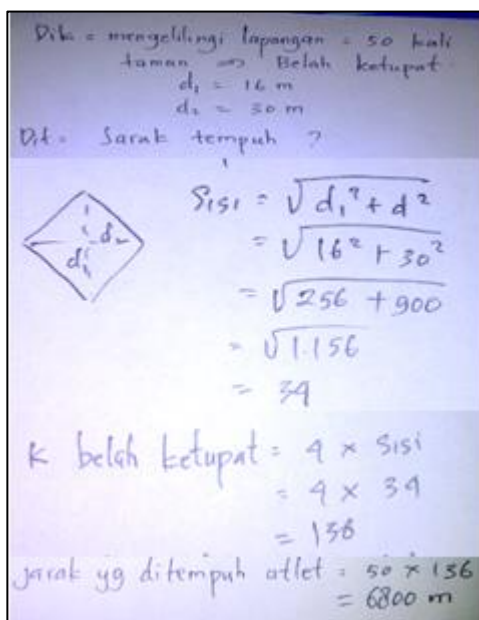 Dik = mengelilingi lapangan = 50 kali
taman => Belah ketupat
d₁ = 16 m
d₂ = 30 m
Dit = Jarak tempuh ?
d₁ d₂
Sisi = √d₁² + d²
= √16² + 30²
= √256 + 900
= √1.156
= 34
K belah ketupat = 4 × sisi
= 4 × 34
= 136
jarak yg ditempuh atlet = 50 × 136
= 6800 m